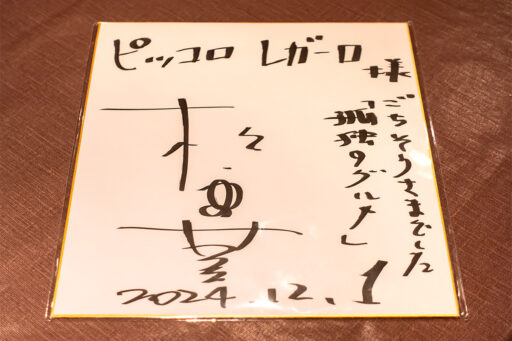 ピッコロ レガーロ 様
ごちそうさまでした
「孤独のグルメ」
2024.12.1